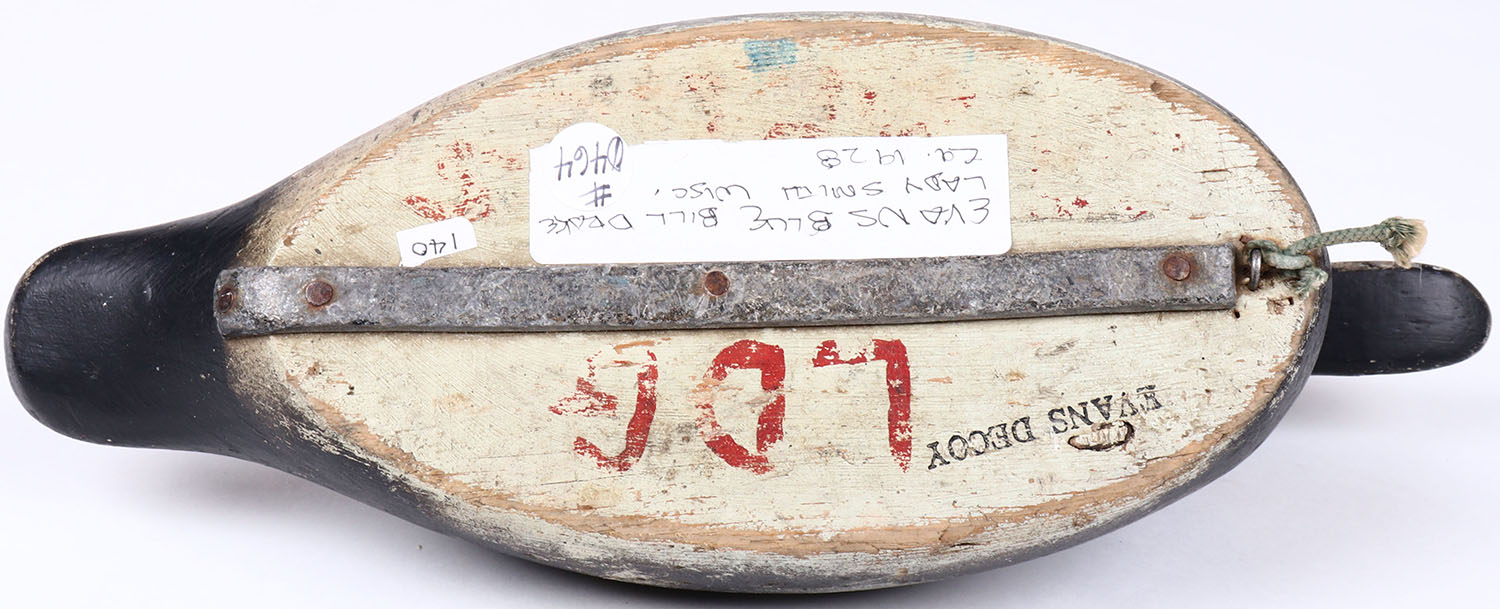 EVANS DECOY
LOG
140
EVANS BLUE BILL DRAKE
LADY SMITH WISC,
Ca. 1928
#
0464